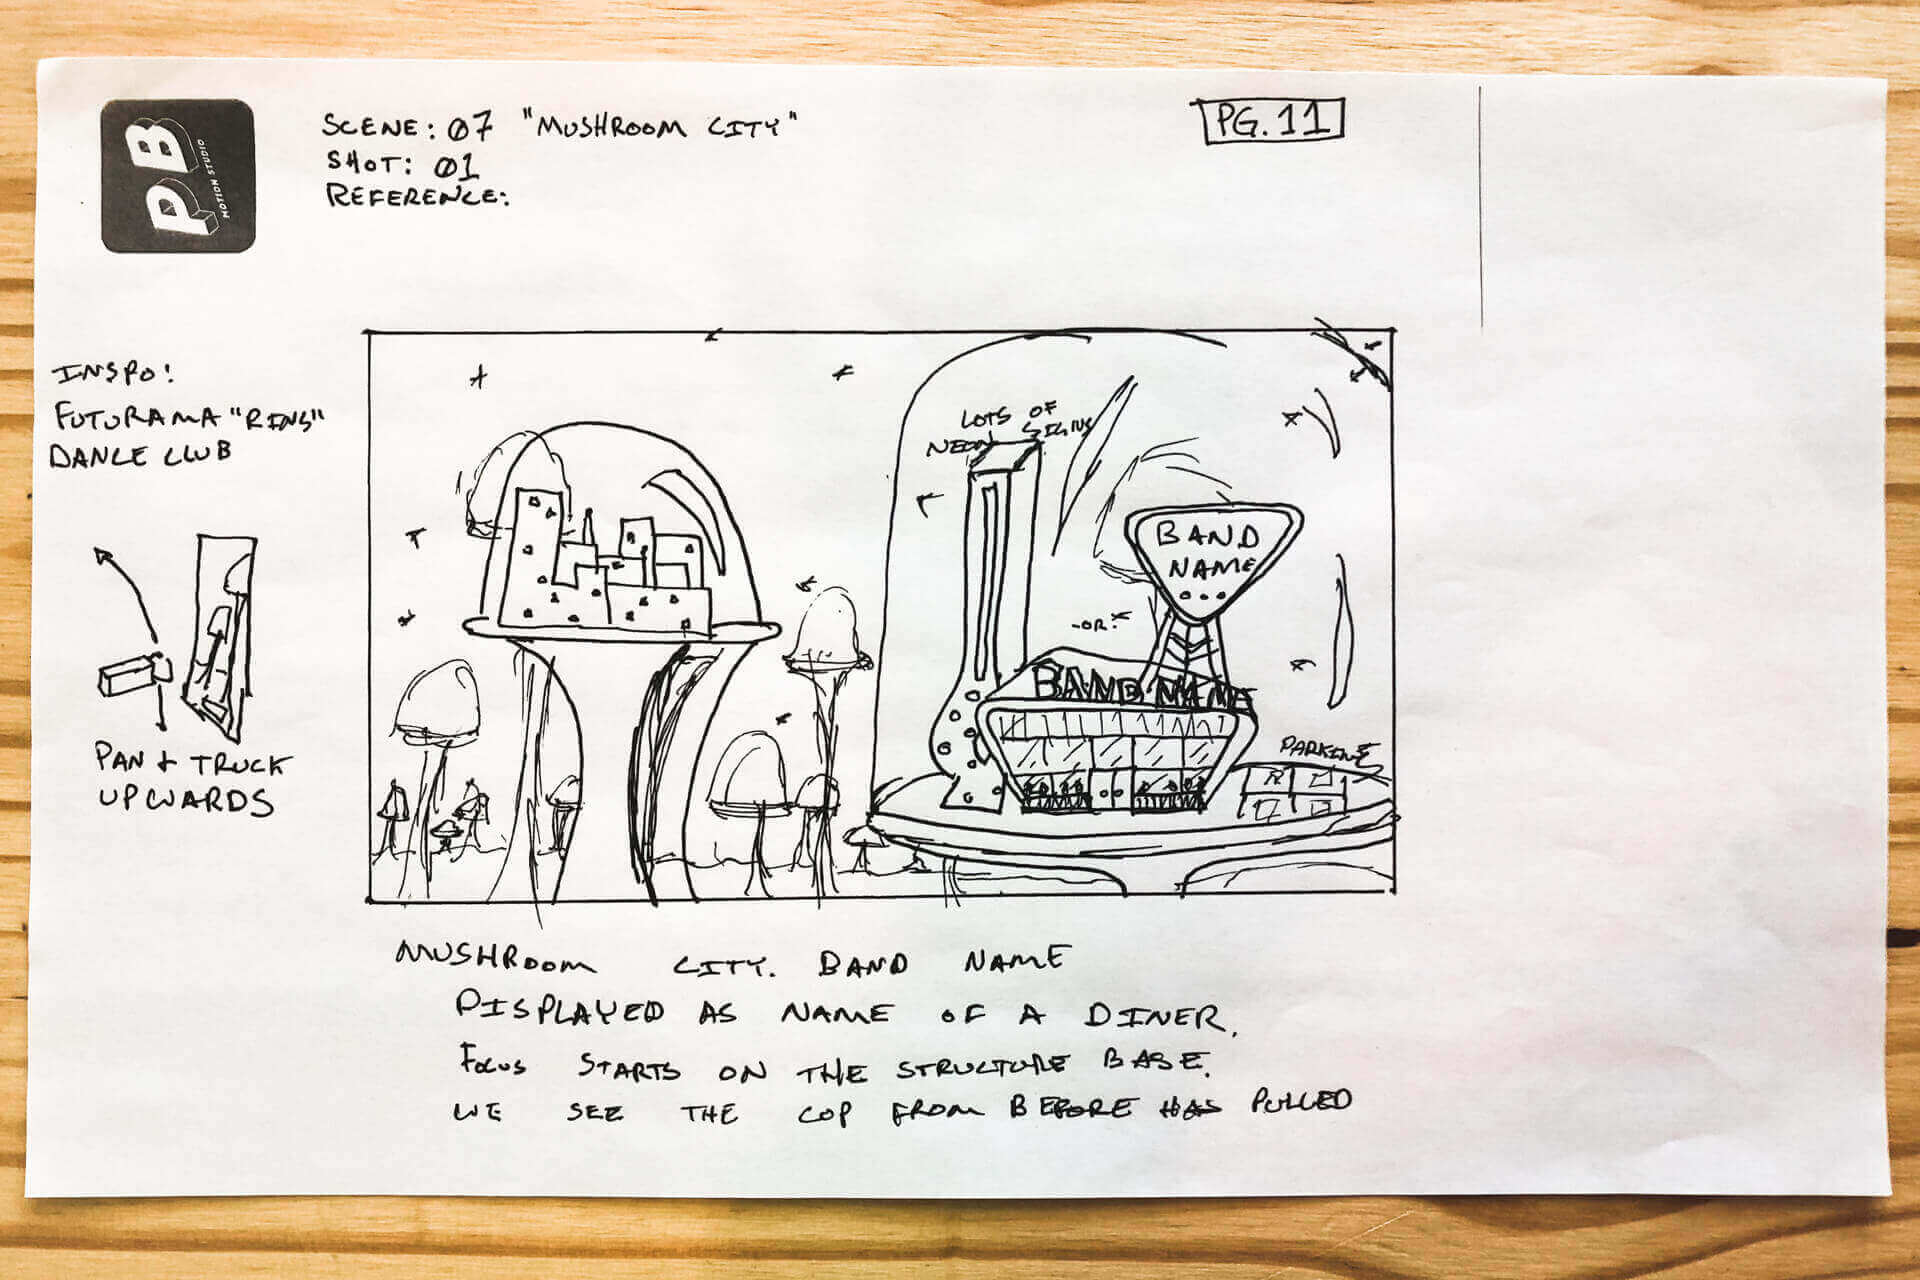 PB
MOTION STUDIO
SCENE: 07 "MUSHROOM CITY"
SHOT: 01
REFERENCE:
PG. 11
INSPO:
FUTURAMA "RINS"
DANCE CLUB
PAN + TRUCK
UPWARDS
LOTS OF
NEON SIGNS
BAND
NAME
-OR-
BAND NAME
PARKING
MUSHROOM CITY. BAND NAME
DISPLAYED AS NAME OF A DINER.
FOCUS STARTS ON THE STRUCTURE BASE.
WE SEE THE COP FROM BEFORE HAS PULLED